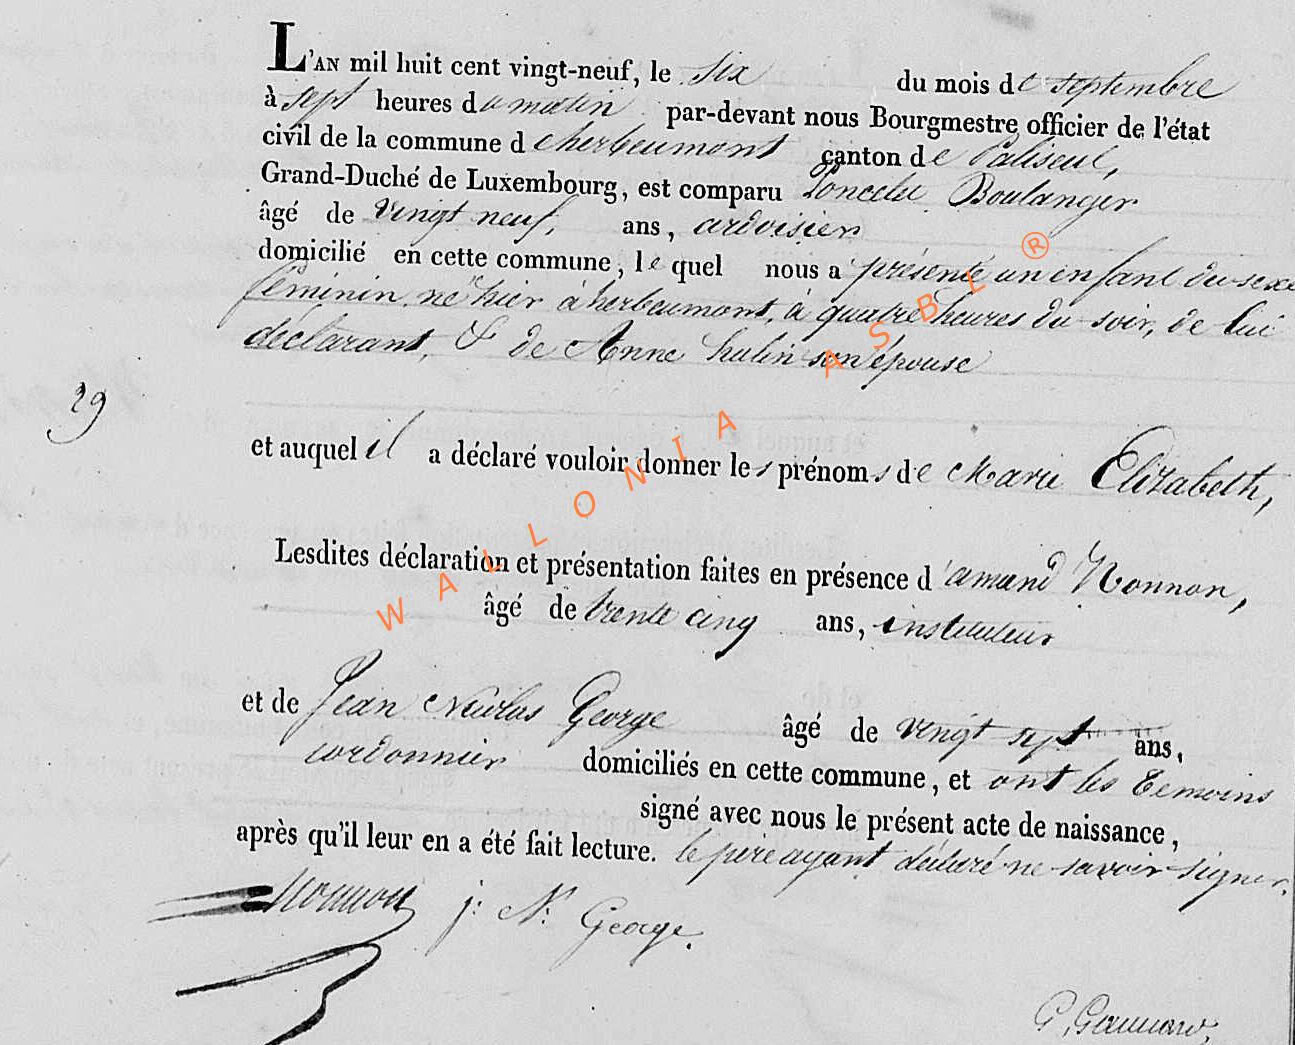 L'AN mil huit cent vingt-neuf, le six du mois de septembre
à sept heures du matin par-devant nous Bourgmestre officier de l'état
civil de la commune d'herbeumont canton de Paliseul,
Grand-Duché de Luxembourg, est comparu Poncelet Boulanger
âgé de vingt neuf, ans, ardoisier
domicilié en cette commune, lequel nous a présenté un enfant du sexe
féminin né hier à herbeumont, à quatre heures du soir, de lui
déclarant, & de Anne hulin son épouse
29
et auquel il a déclaré vouloir donner les prénoms de Marie Elizabeth,
Lesdites déclaration et présentation faites en présence d'amand Nonnon,
âgé de trente cinq ans, instituteur
et de Jean Nicolas George âgé de vingt sept ans,
cordonnier domiciliés en cette commune, et ont les temoins
signé avec nous le présent acte de naissance,
après qu'il leur en a été fait lecture. le père ayant déclaré ne savoir signer.
Nonnon j: N: George.
WALLONIA ASBL ®